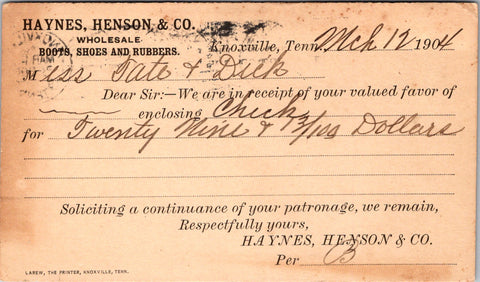 HAYNES, HENSON & CO.
WHOLESALE
BOOTS, SHOES AND RUBBERS.
Knoxville, Tenn. Mch 12 1904
Miss Tate & Dick
Dear Sir:—We are in receipt of your valued favor of
enclosing Check
for Twenty Nine & /100 Dollars
Soliciting a continuance of your patronage, we remain,
Respectfully yours,
HAYNES, HENSON & CO.
Per B
LAREW, THE PRINTER, KNOXVILLE, TENN.